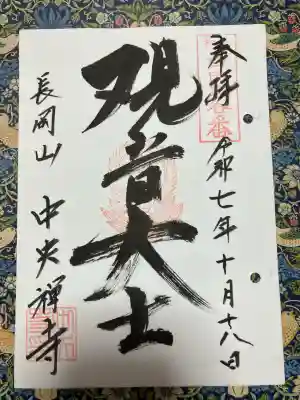 奉拝
令和七年十月十八日
观音大士
長岡山
中央禅寺